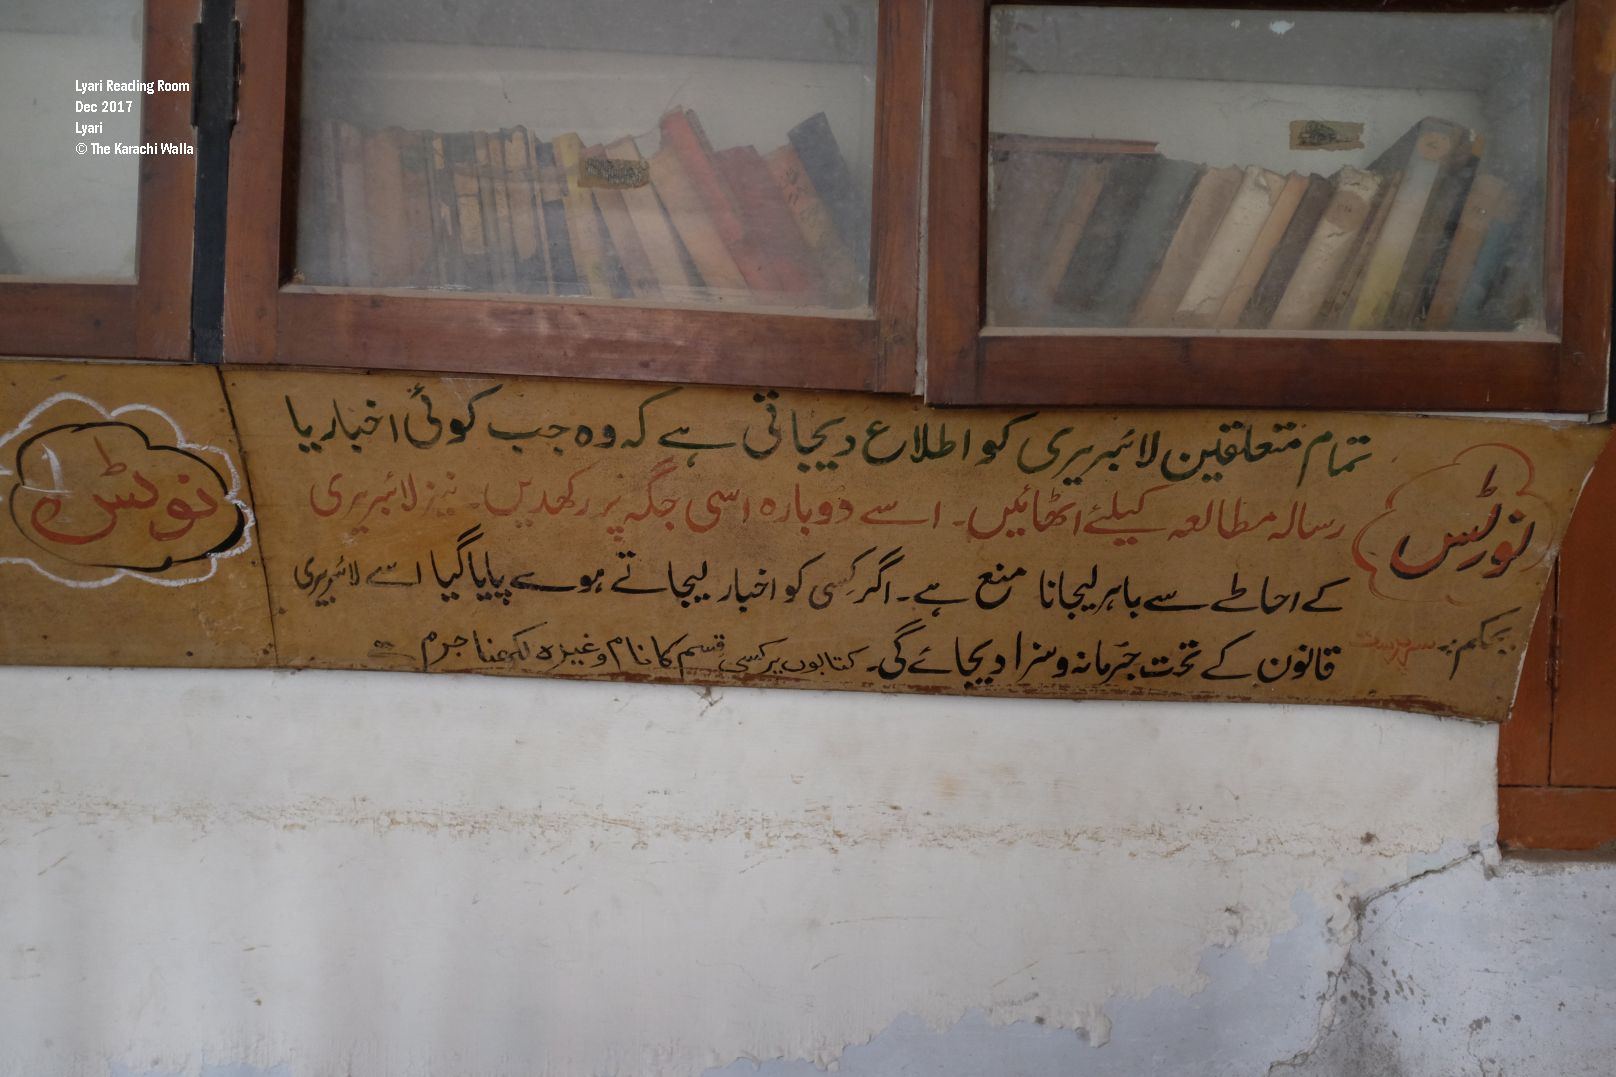 Lyari Reading Room
Dec 2017
Lyari
© The Karachi Walla
نوٹس
تمام متعلقین لائبریری کو اطلاع دیجاتی ہے کہ وہ جب کوئی اخبار یا
رسالہ مطالعہ کیلئے اٹھائیں۔ اسے دوبارہ اسی جگہ پر رکھدیں۔ نیز لائبریری
کے احاطے سے باہر لیجانا منع ہے۔ اگر کسی کو اخبار لیجاتے ہوے پایا گیا اسے لائبریری
قانون کے تحت جرمانہ و سزا دیجائے گی۔ کتابوں پر کسی قسم کا نام وغیرہ لکھنا جرم ہے
بحکم: سرپرست
نوٹس